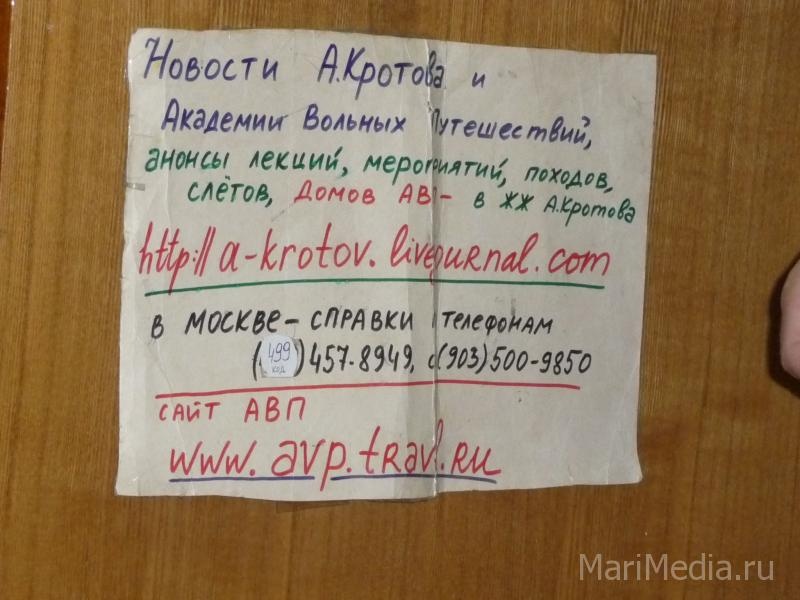 Новости А.Кротова и
Академии Вольных Путешествий,
анонсы лекций, мероприятий, походов,
слётов, Домов АВП - в ЖЖ А.Кротова
http://a-krotov.livejournal.com
в Москве - справки телефонам
(499)457-8949, (903)500-9850
код
сайт АВП
www.avp.travel.ru
MariMedia.ru